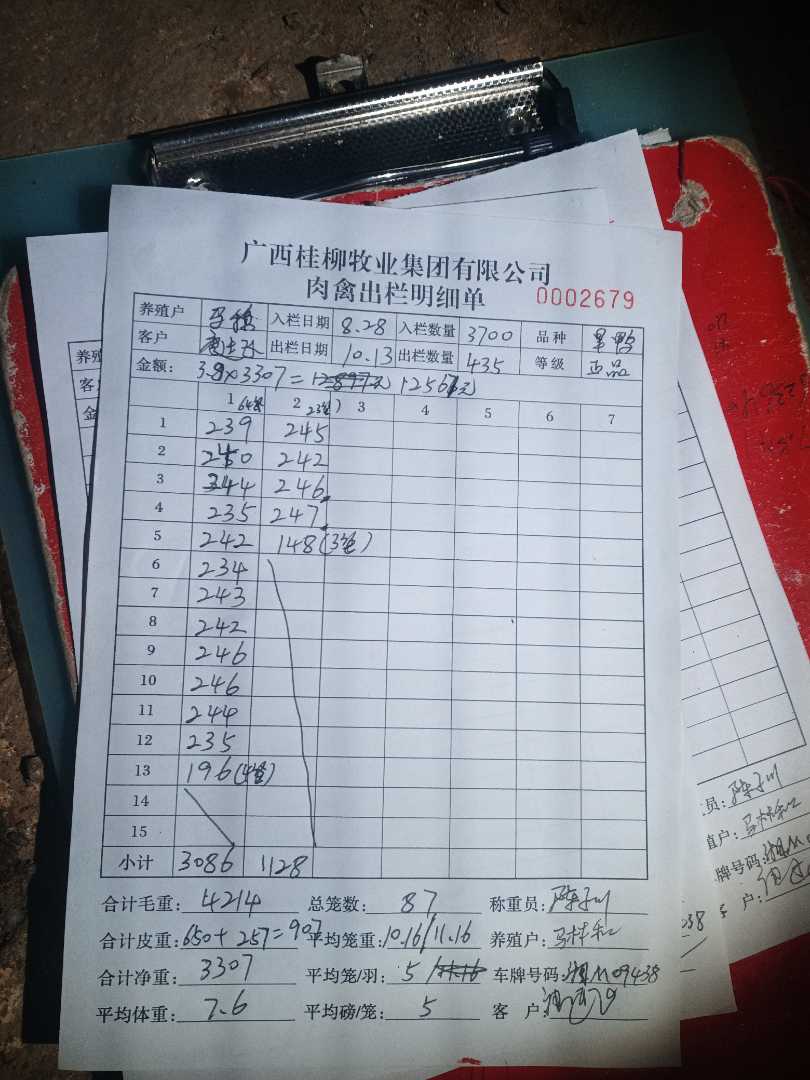 广西桂柳牧业集团有限公司
肉禽出栏明细单 0002679
养殖户 入栏日期 8.28 入栏数量 3700 品种
客户 出栏日期 10.13 出栏数量 435 等级 正品
金额: 3.8×3307= 12567元
1 64笼 2 23笼) 3 4 5 6 7
1 239 245
2 240 242
3 244 246
4 235 247
5 242 148(3笼)
6 234
7 243
8 242
9 246
10 246
11 244
12 235
13 196(4笼)
14
15
小计 3086 1128
合计毛重: 4214 总笼数: 87 称重员:
合计皮重: 650+257=907 平均笼重: 10.16/11.16 养殖户:
合计净重: 3307 平均笼/羽: 5 车牌号码: 湘M09438
平均体重: 7.6 平均磅/笼: 5 客 户:
养殖
客
金
员:
直户:
牌号码:
户: